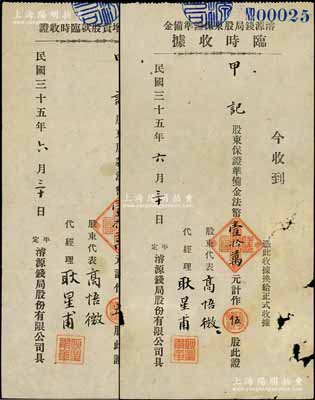 濬源錢局股東保證準備金
臨時收據
00025
今收到
甲記
股東保證準備金法幣壹拾萬元計作伍股此證
憑此收據換給正式收據
股東代表 高悟徵
代經理 耿星甫
平定縣濬源錢局股份有限公司
民國三十五年六月三十日
增資股款臨時收證
股東代表 高悟徵
代經理 耿星甫
平定縣濬源錢局股份有限公司
民國三十五年六月三十日
上海陽明拍賣